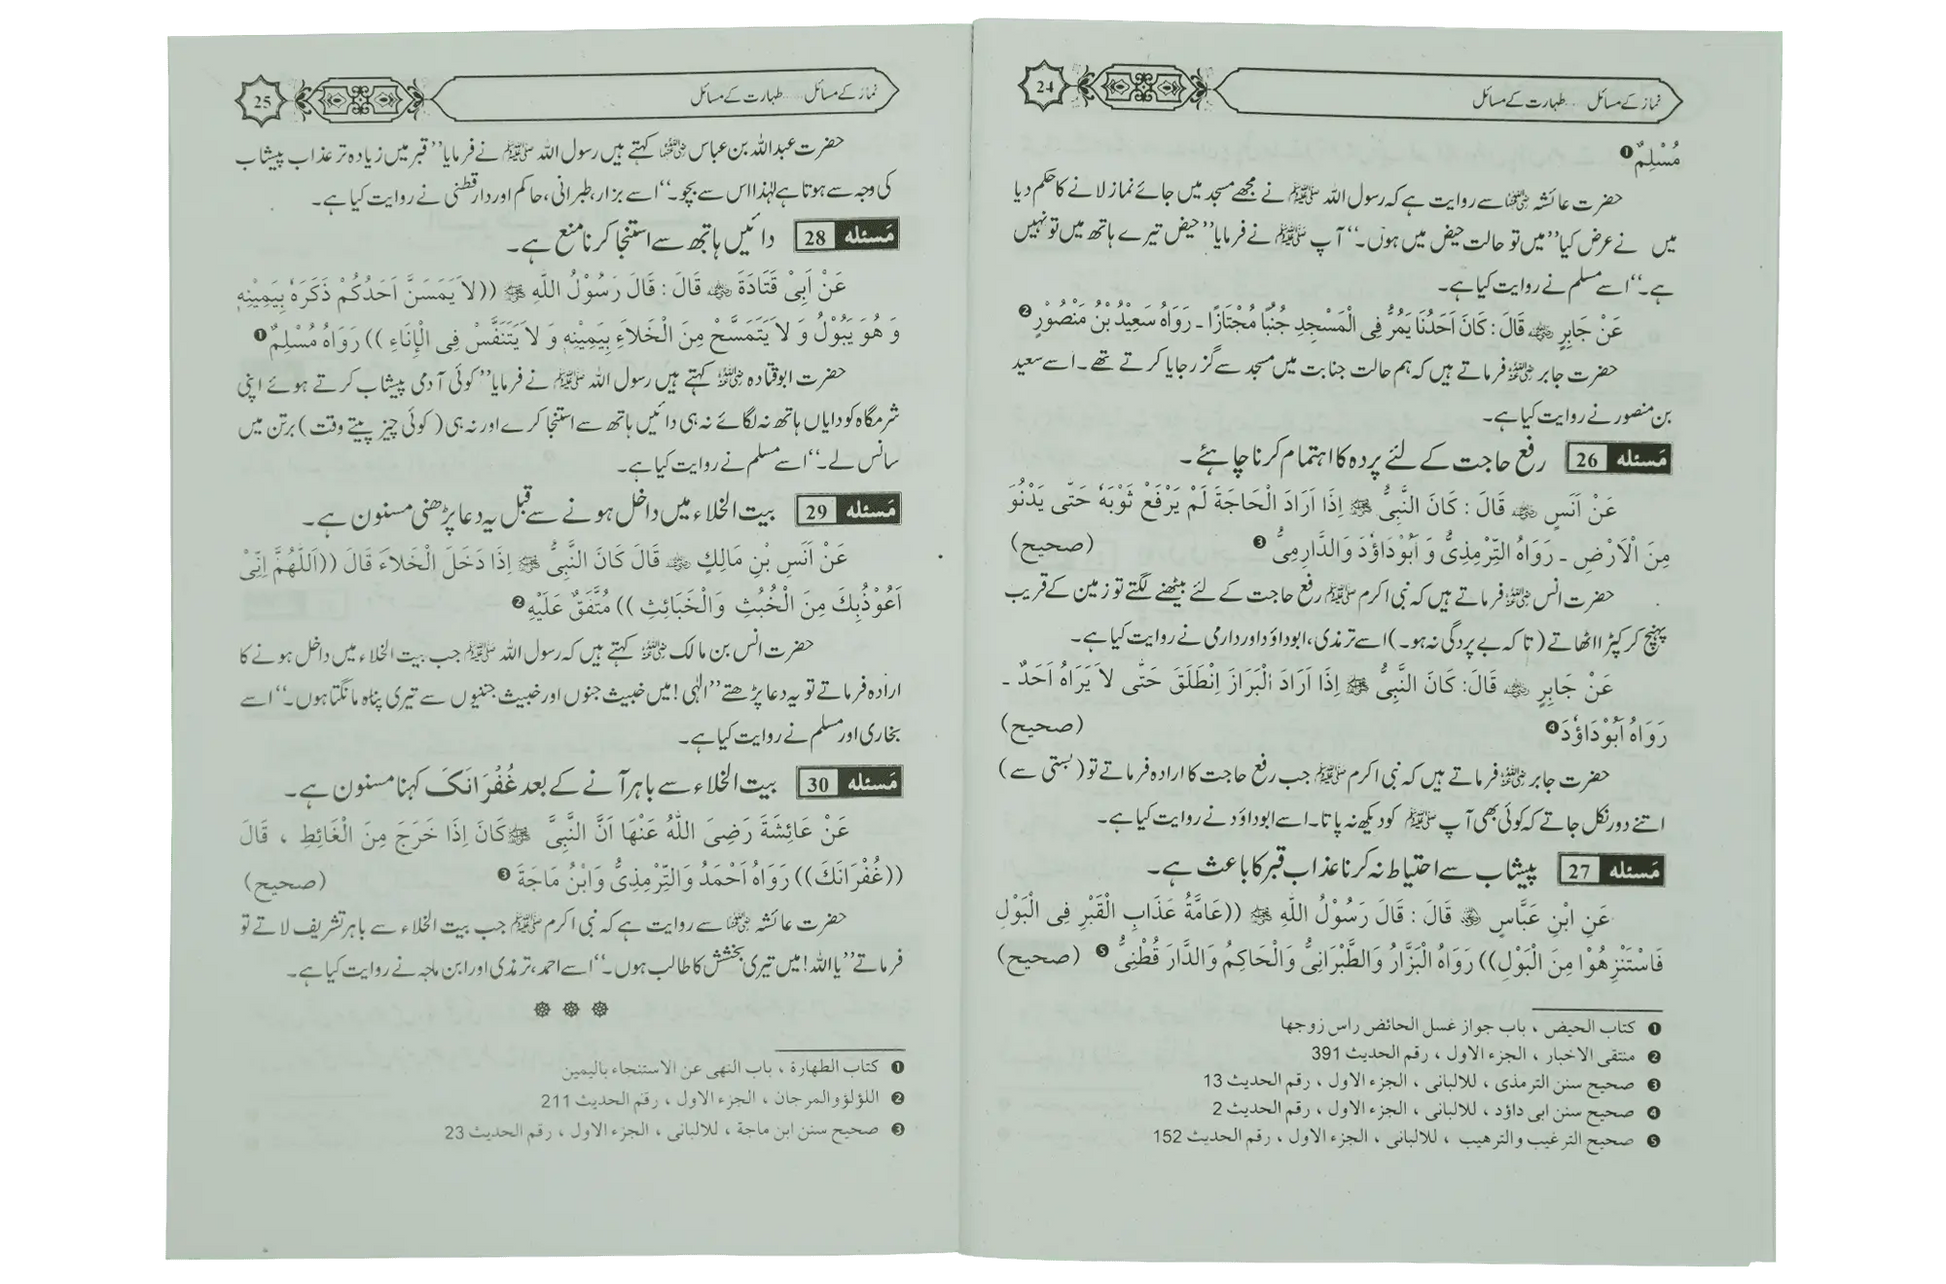 نماز کے مسائل ..... طہارت کے مسائل
24
مُسْلِمٌ ❶
حضرت عائشہ رضی اللہ عنہا سے روایت ہے کہ رسول اللہ ﷺ نے مجھے مسجد میں جائے نماز لانے کا حکم دیا
میں نے عرض کیا ”میں تو حالت حیض میں ہوں۔“ آپ ﷺ نے فرمایا ”حیض تیرے ہاتھ میں تو نہیں
ہے۔“ اسے مسلم نے روایت کیا ہے۔
عَنْ جَابِرٍ رضی اللہ عنہ قَالَ : كَانَ اَحَدُنَا يَمُرُّ فِى الْمَسْجِدِ جُنُبًا مُجْتَازًا ۔ رَوَاهُ سَعِيْدُ بْنُ مَنْصُوْرٍ ❷
حضرت جابر رضی اللہ عنہ فرماتے ہیں کہ ہم حالت جنابت میں مسجد سے گزر جایا کرتے تھے۔ اسے سعید
بن منصور نے روایت کیا ہے۔
مَسئله 26 رفع حاجت کے لئے پردہ کا اہتمام کرنا چاہئے۔
عَنْ اَنَسٍ رضی اللہ عنہ قَالَ : كَانَ النَّبِىُّ ﷺ اِذَا اَرَادَ الْحَاجَةَ لَمْ يَرْفَعْ ثَوْبَهٗ حَتّٰى يَدْنُوَ
مِنَ الْاَرْضِ ۔ رَوَاهُ التِّرْمِذِىُّ وَ اَبُوْدَاوٗدَ وَالدَّارِمِىُّ ❸ (صحيح)
حضرت انس رضی اللہ عنہ فرماتے ہیں کہ نبی اکرم ﷺ رفع حاجت کے لئے بیٹھنے لگتے تو زمین کے قریب
پہنچ کر کپڑا اٹھاتے (تا کہ بے پردگی نہ ہو۔) اسے ترمذی، ابوداؤد اور دارمی نے روایت کیا ہے۔
عَنْ جَابِرٍ رضی اللہ عنہ قَالَ: كَانَ النَّبِىُّ ﷺ اِذَا اَرَادَ الْبَرَازَ اِنْطَلَقَ حَتّٰى لاَ يَرَاهُ اَحَدٌ ۔
رَوَاهُ اَبُوْدَاوٗدَ ❹ (صحيح)
حضرت جابر رضی اللہ عنہ فرماتے ہیں کہ نبی اکرم ﷺ جب رفع حاجت کا ارادہ فرماتے تو (بستی سے)
اتنے دور نکل جاتے کہ کوئی بھی آپ ﷺ کو دیکھ نہ پاتا۔ اسے ابوداؤد نے روایت کیا ہے۔
مَسئله 27 پیشاب سے احتیاط نہ کرنا عذاب قبر کا باعث ہے۔
عَنِ ابْنِ عَبَّاسٍ رضی اللہ عنہما قَالَ : قَالَ رَسُوْلُ اللّٰهِ ﷺ ((عَامَّةُ عَذَابِ الْقَبْرِ فِى الْبَوْلِ
فَاسْتَنْزِهُوْا مِنَ الْبَوْلِ)) رَوَاهُ الْبَزَّارُ وَالطَّبْرَانِىُّ وَالْحَاكِمُ وَالدَّارَ قُطْنِىُّ ❺ (صحيح)
❶ كتاب الحيض ، باب جواز غسل الحائض راس زوجها
❷ منتقى الاخبار ، الجزء الاول ، رقم الحديث 391
❸ صحيح سنن الترمذى ، للالبانى ، الجزء الاول ، رقم الحديث 13
❹ صحيح سنن ابى داؤد ، للالبانى ، الجزء الاول ، رقم الحديث 2
❺ صحيح الترغيب والترهيب ، للالبانى ، الجزء الاول ، رقم الحديث 152
نماز کے مسائل ..... طہارت کے مسائل
25
حضرت عبداللہ بن عباس رضی اللہ عنہما کہتے ہیں رسول اللہ ﷺ نے فرمایا ”قبر میں زیادہ تر عذاب پیشاب
کی وجہ سے ہوتا ہے لہٰذا اس سے بچو۔“ اسے بزار، طبرانی، حاکم اور دارقطنی نے روایت کیا ہے۔
مَسئله 28 دائیں ہاتھ سے استنجا کرنا منع ہے۔
عَنْ اَبِىْ قَتَادَةَ رضی اللہ عنہ قَالَ : قَالَ رَسُوْلُ اللّٰهِ ﷺ ((لاَ يَمَسَّنَّ اَحَدُكُمْ ذَكَرَهٗ بِيَمِيْنِهٖ
وَ هُوَ يَبُوْلُ وَ لاَ يَتَمَسَّحْ مِنَ الْخَلاَءِ بِيَمِيْنِهٖ وَ لاَ يَتَنَفَّسْ فِى الْاِنَاءِ )) رَوَاهُ مُسْلِمٌ ❶
حضرت ابوقتادہ رضی اللہ عنہ کہتے ہیں رسول اللہ ﷺ نے فرمایا ”کوئی آدمی پیشاب کرتے ہوئے اپنی
شرمگاہ کو دایاں ہاتھ نہ لگائے نہ ہی دائیں ہاتھ سے استنجا کرے اور نہ ہی (کوئی چیز پیتے وقت) برتن میں
سانس لے۔“ اسے مسلم نے روایت کیا ہے۔
مَسئله 29 بیت الخلاء میں داخل ہونے سے قبل یہ دعا پڑھنی مسنون ہے۔
عَنْ اَنَسِ بْنِ مَالِكٍ رضی اللہ عنہ قَالَ كَانَ النَّبِىُّ ﷺ اِذَا دَخَلَ الْخَلاَءَ قَالَ ((اَللّٰهُمَّ اِنِّىْ
اَعُوْذُبِكَ مِنَ الْخُبُثِ وَالْخَبَائِثِ )) مُتَّفَقٌ عَلَيْهِ ❷
حضرت انس بن مالک رضی اللہ عنہ کہتے ہیں کہ رسول اللہ ﷺ جب بیت الخلاء میں داخل ہونے کا
ارادہ فرماتے تو یہ دعا پڑھتے ”الٰہی! میں خبیث جنوں اور خبیث جننیوں سے تیری پناہ مانگتا ہوں۔“ اسے
بخاری اور مسلم نے روایت کیا ہے۔
مَسئله 30 بیت الخلاء سے باہر آنے کے بعد غُفْرَانَكَ کہنا مسنون ہے۔
عَنْ عَائِشَةَ رَضِىَ اللّٰهُ عَنْهَا اَنَّ النَّبِىَّ ﷺ كَانَ اِذَا خَرَجَ مِنَ الْغَائِطِ ، قَالَ
((غُفْرَانَكَ)) رَوَاهُ اَحْمَدُ وَالتِّرْمِذِىُّ وَابْنُ مَاجَةَ ❸ (صحيح)
حضرت عائشہ رضی اللہ عنہا سے روایت ہے کہ نبی اکرم ﷺ جب بیت الخلاء سے باہر تشریف لاتے تو
فرماتے ”یا اللہ! میں تیری بخشش کا طالب ہوں۔“ اسے احمد، ترمذی اور ابن ماجہ نے روایت کیا ہے۔
❶ كتاب الطهارة ، باب النهى عن الاستنجاء باليمين
❷ اللؤلؤ والمرجان ، الجزء الاول ، رقم الحديث 211
❸ صحيح سنن ابن ماجة ، للالبانى ، الجزء الاول ، رقم الحديث 23